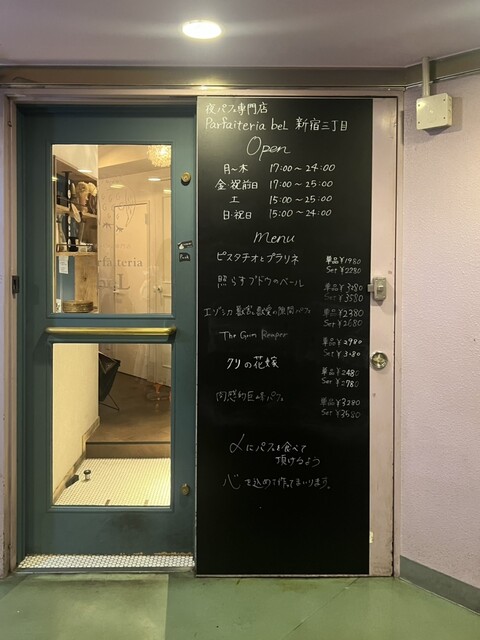 夜パフェ専門店
Parfaiteria beL 新宿三丁目
Open
月〜木 17:00〜24:00
金・祝前日 17:00〜25:00
土 15:00〜25:00
日・祝日 15:00〜24:00
Menu
ピスタチオとプラリネ 単品¥1980
Set ¥2280
照らすブドウのベール 単品¥3280
Set ¥3580
エゾシカ 単品¥2380
Set ¥2680
The Grim Reaper 単品¥2980
Set ¥3280
クリの花嫁 単品¥2480
Set ¥2780
肉感的巨峰パフェ 単品¥3280
Set ¥3580
〆にパフェを食べて
頂けるよう
心を込めて作ってまいります。
Parfaiteria
beL